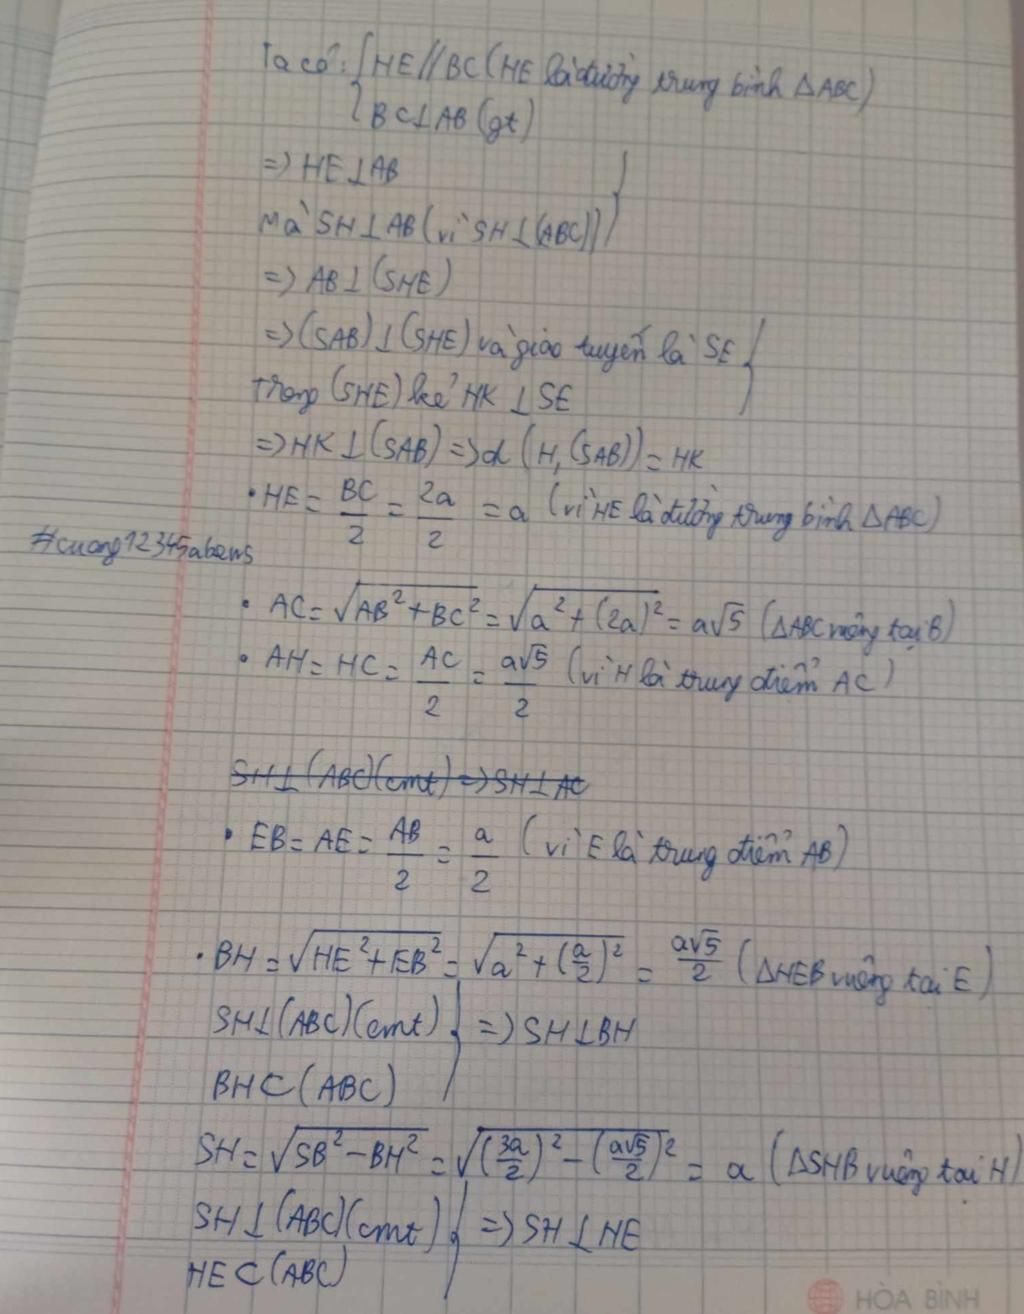 Ta có: { HE // BC (HE là đường trung bình ΔABC)
BC ⊥ AB (gt)
=> HE ⊥ AB
Mà SH ⊥ AB (vì SH ⊥ (ABC)) }
=> AB ⊥ (SHE)
=> (SAB) ⊥ (SHE) và giao tuyến là SE }
Trong (SHE) kẻ HK ⊥ SE
=> HK ⊥ (SAB) => d (H, (SAB)) = HK
• HE = BC/2 = 2a/2 = a (vì HE là đường trung bình ΔABC)
#cuong12345abcws
• AC = √(AB² + BC²) = √(a² + (2a)²) = a√5 (ΔABC vuông tại B)
• AH = HC = AC/2 = a√5/2 (vì H là trung điểm AC)
SH ⊥ (ABC) (cmt) => SH ⊥ AC
• EB = AE = AB/2 = a/2 (vì E là trung điểm AB)
• BH = √(HE² + EB²) = √(a² + (a/2)²) = a√5/2 (ΔHEB vuông tại E)
SH ⊥ (ABC) (cmt) } => SH ⊥ BH
BH ⊂ (ABC)
SH = √(SB² - BH²) = √((3a/2)² - (a√5/2)²) = a (ΔSHB vuông tại H)
SH ⊥ (ABC) (cmt) } => SH ⊥ HE
HE ⊂ (ABC)
HÒA BÌNH